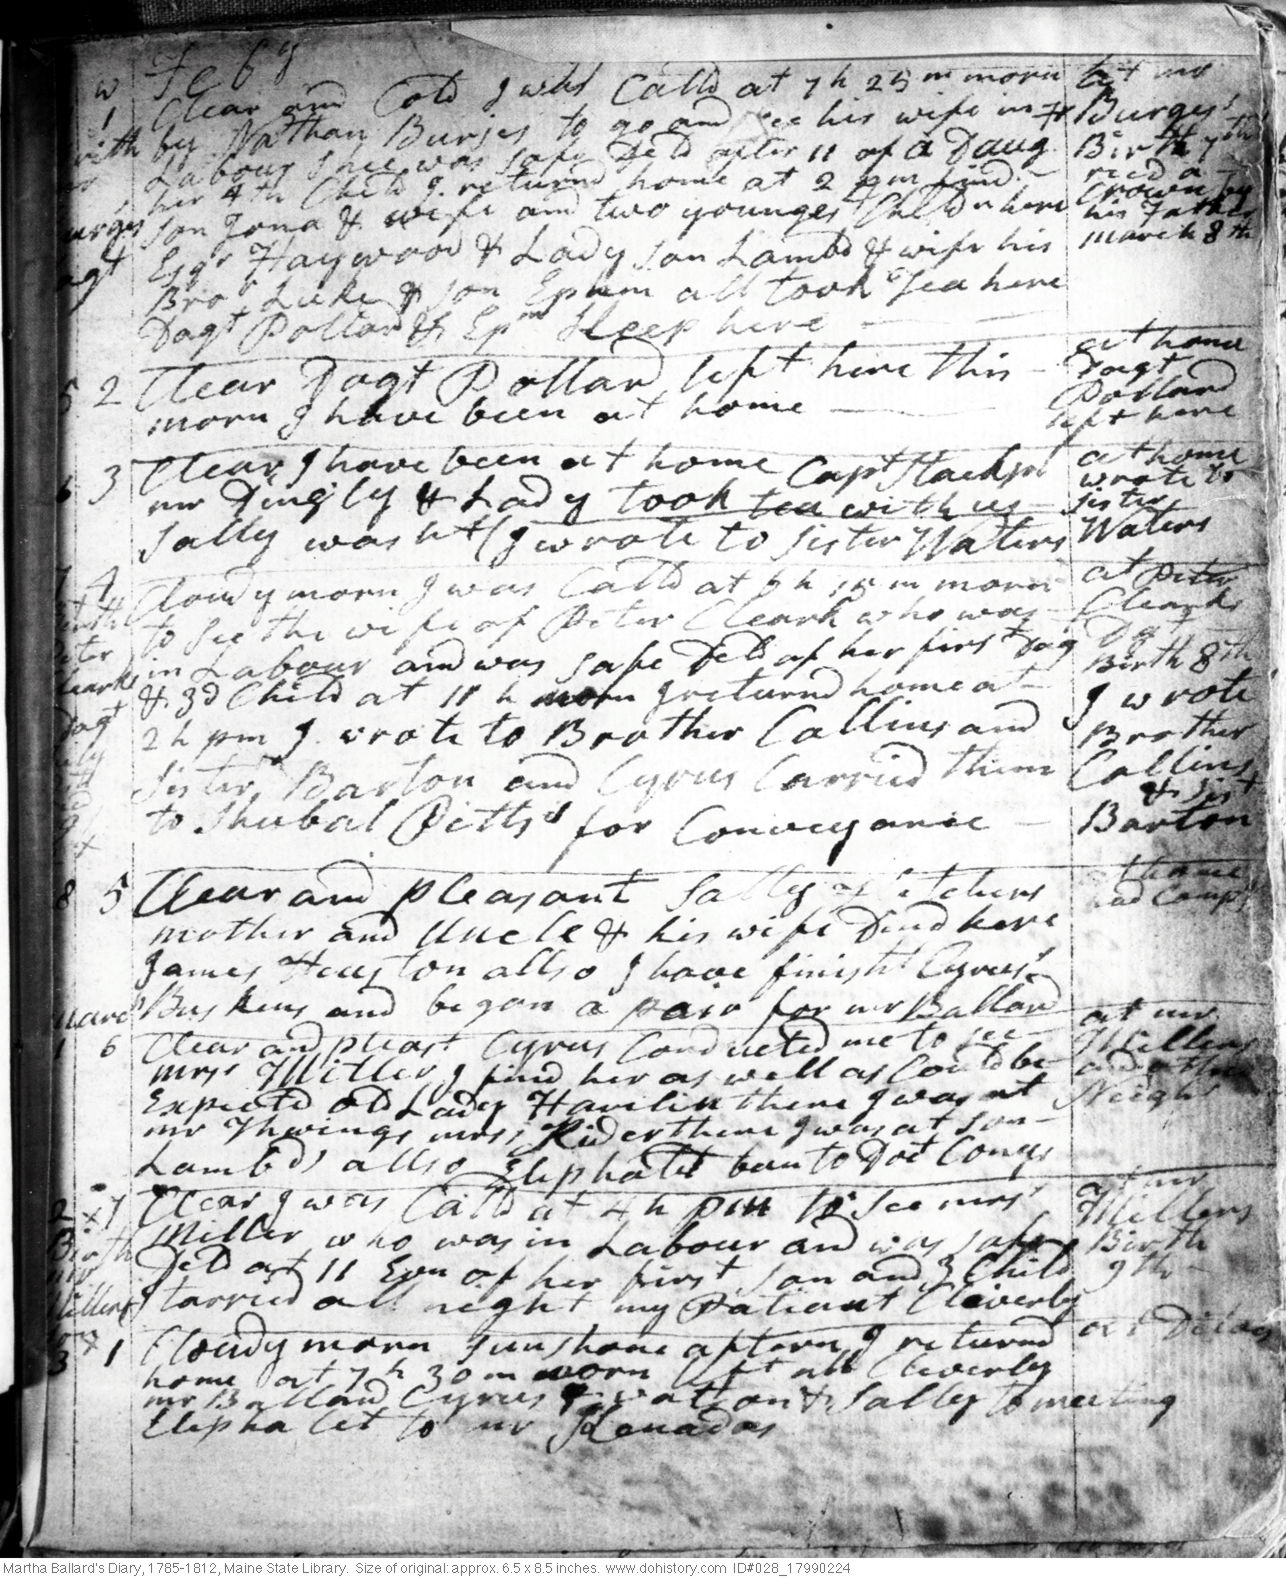 Feby
w
1 Clear and Cold I was Calld at 7 h 25 m morn
by Nathan Burjes to go and see his wife in
Labour Shee was safe Deld after 11 of a Daug
her 4th Child I returnd home at 2 pm find
son Jona & wife and two youngest Childn here
Esqr Haywood & Lady son Lambd & wife his
Bror Luke & son Ephm all took Tea here
Dagt Pollard & Epm Sleep here
at mr
Burges'
Birth 7th
ricd a
Crown by
his Father
march 8th
5 2 Clear Dagt Pollard left here this
morn I have been at home
at home
Dagt
Pollard
left here
6 3 Clear I have been at home Capt Stackpol
mr Dingly & Lady took tea with us
Sally washt I wrote to sister Waters
at home
wrote to
sister
Waters
7 4 Cloudy morn I was Calld at h 15 m morn
to see the wife of Peter Cleark who was
in Labour and was safe Deld of her first Dag
& 3d Child at 11 h morn I returnd home at
2 h pm I wrote to Brother Collins and
Sister Barton and Cyrus Carried them
to Shubal Pitts's for Conveyance
at Peter
Clearks
Dagt
Birth 8th
I wrote
Brother
Collins
& Sist
Barton
8 5 Clear and pleasant Sally
mother and Uncle & his wife Dind here
James Heuston allso I have finisht Cyrus'
Buskins and began a pair for mr Ballard
at home
had Comp
1 6 Clear and pleast Cyrus Conducted me to see
mrs Miller I find her as well as Could be
Expected old Lady Hamlin there I was at
mr Thwings mrs Riderthere I was at son
Lambds allso Eliphalet Doct Conys
at mr
Millers
and other
Neighs
2 x7 Clear I was Calld at 4 h pm to see mrs
Miller who was in Labour and was safe
Deld at 11 Evn of her first son and 3 Child
I tarried all night my Patient Cleverly
at mr
Millers
Birth
9th
3 x 1 Cloudy morn sunshone aftern I returnd
home at 7 h 30 m morn left all Cleverly
mr Ballard Cyrus & Sally to meeting
Eliphalet to mr
Martha Ballard's Diary, 1785-1812, Maine State Library. Size of original: approx. 6.5 x 8.5 inches. www.dohistory.com ID#028_17990224